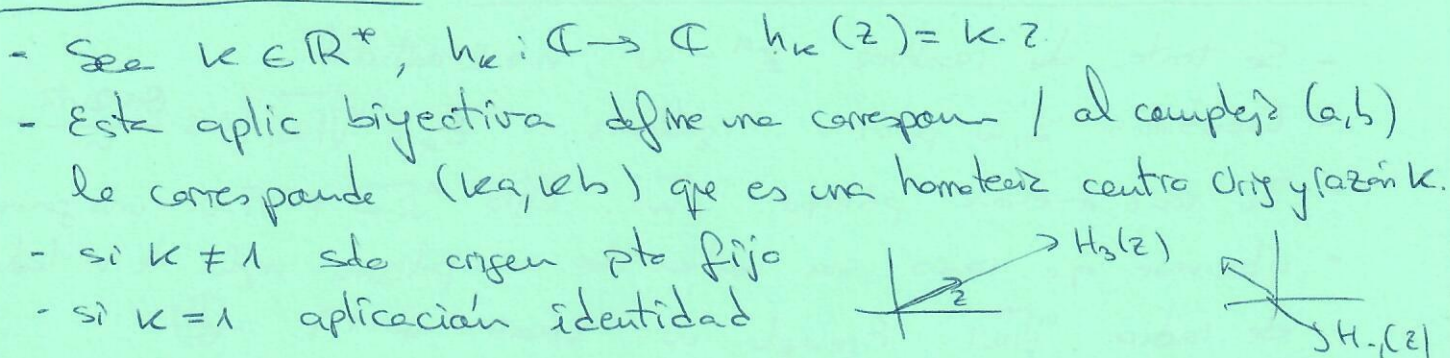 - Sea k ∈ ℝ*, h_k : ℂ → ℂ h_k (z) = k. z.
- Esta aplic biyectiva define una correspon / al complejo (a,b)
le corresponde (ka, kb) que es una homotecia centro Orig y razón k.
- si k ≠ 1 solo origen pto fijo
- si k = 1 aplicación identidad
H₃(z)
z
H₋₁(z)